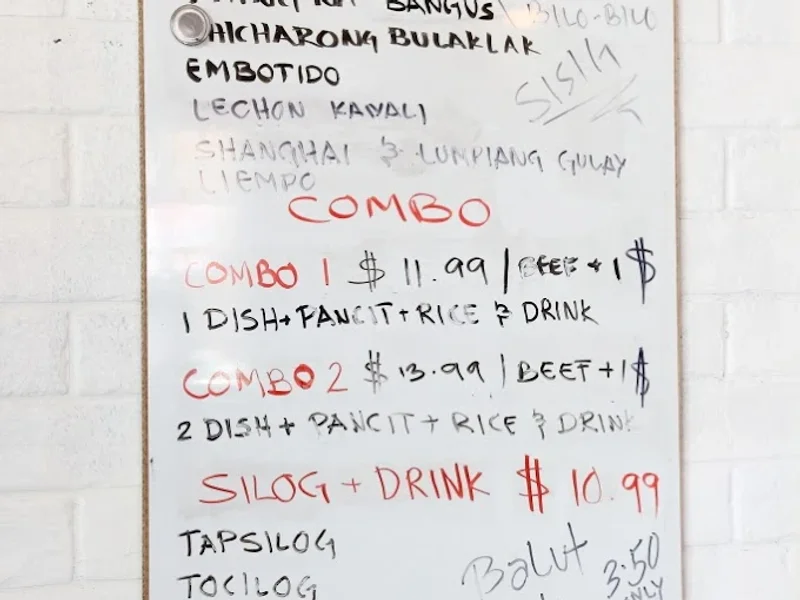 BANGUS BILO-BILO
CHICHARONG BULAKLAK
EMBOTIDO
Sisig
LECHON KAWALI
SHANGHAI & LUMPIANG GULAY
LIEMPO
COMBO
COMBO 1 $ 11.99 | BEEF + 1 $
1 DISH + PANCIT + RICE & DRINK
COMBO 2 $ 13.99 | BEEF + 1 $
2 DISH + PANCIT + RICE & DRINK
SILOG + DRINK $ 10.99
TAPSILOG
Balut 3.50
TOCILOG
ONLY